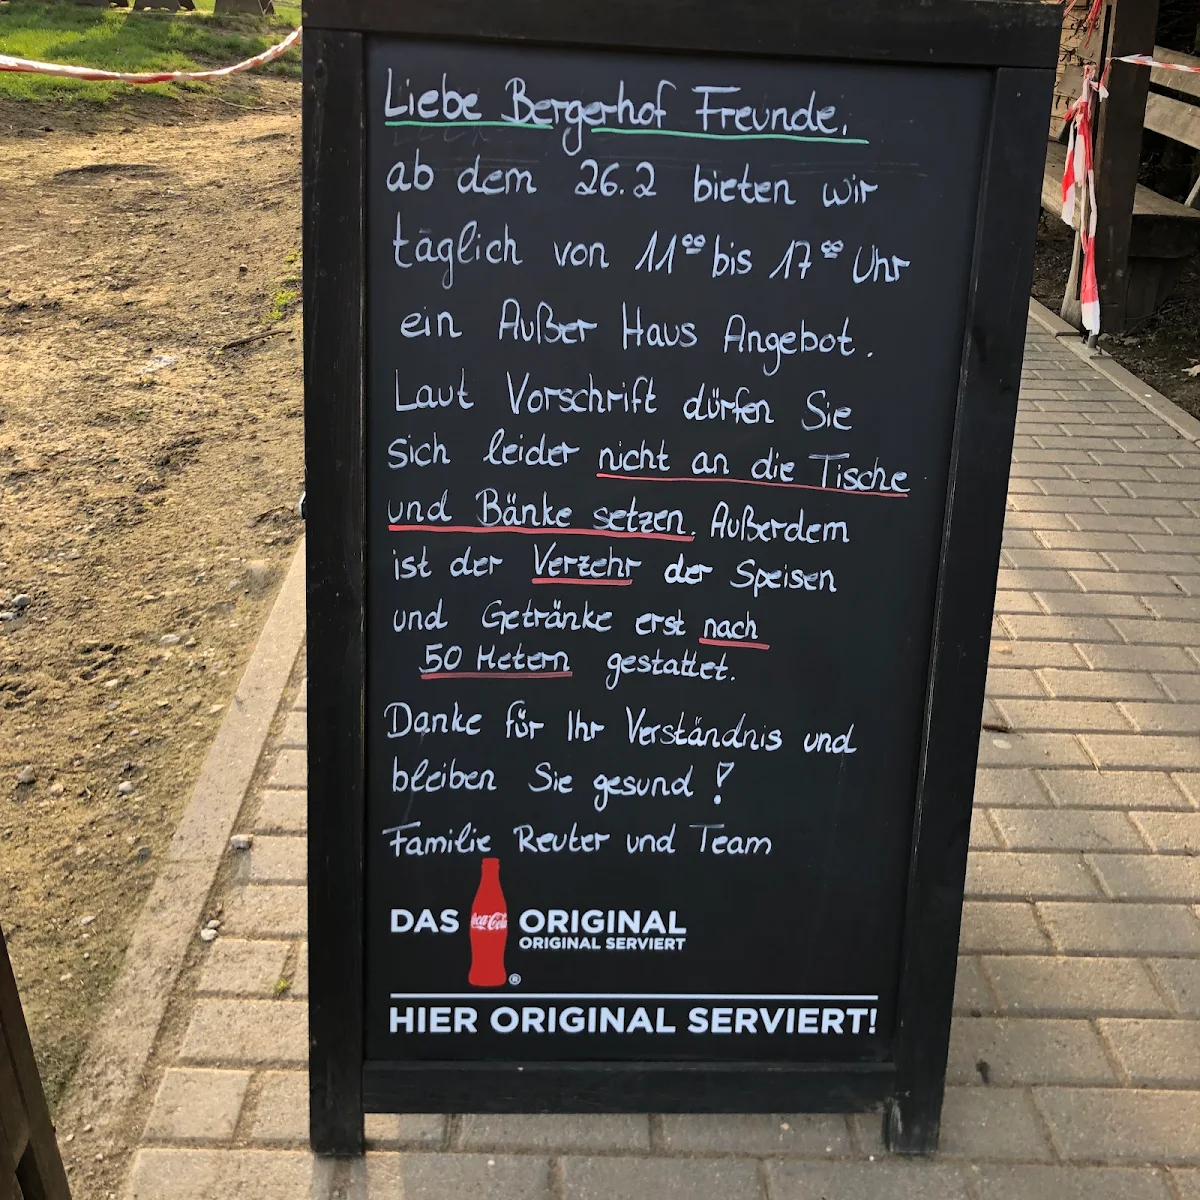 Liebe Bergerhof Freunde,
ab dem 26.2 bieten wir
täglich von 11⁰⁰ bis 17⁰⁰ Uhr
ein Außer Haus Angebot.
Laut Vorschrift dürfen Sie
sich leider nicht an die Tische
und Bänke setzen. Außerdem
ist der Verzehr der Speisen
und Getränke erst nach
50 Metern gestattet.
Danke für Ihr Verständnis und
bleiben Sie gesund!
Familie Reuter und Team
DAS Coca-Cola ORIGINAL
ORIGINAL SERVIERT
®
HIER ORIGINAL SERVIERT!